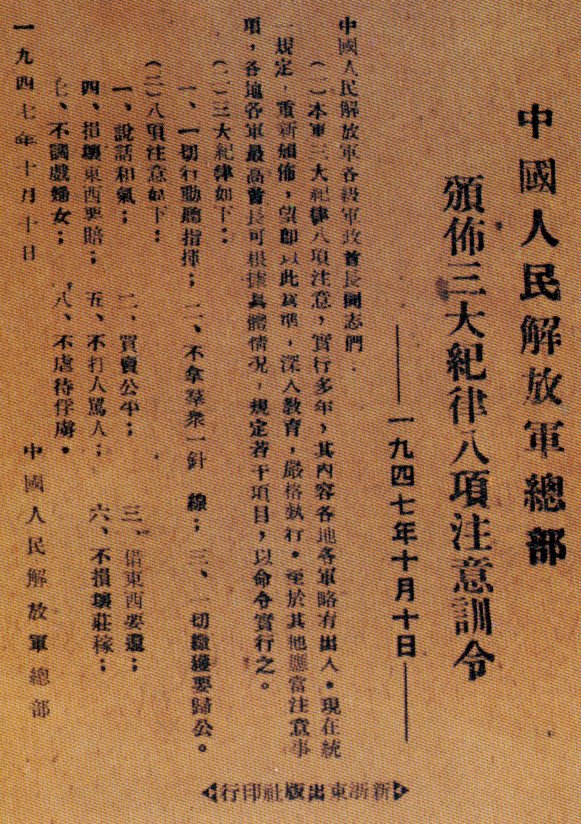 中國人民解放軍總部
頒佈三大紀律八項注意訓令
——一九四七年十月十日——
中國人民解放軍各級軍政首長同志們：
(一)本軍三大紀律八項注意，實行多年，其內容各地各軍略有出入。現在統
一規定，重新頒佈，望即以此爲準，深入教育，嚴格執行。至於其他應當注意事
項，各地各軍最高首長可根據具體情況，規定若干項目，以命令實行之。
(二)三大紀律如下：
一、一切行動聽指揮； 二、不拿羣衆一針 線； 三、一切繳獲要歸公。
(三)八項注意如下：
一、說話和氣； 二、買賣公平； 三、借東西要還；
四、損壞東西要賠； 五、不打人罵人； 六、不損壞莊稼；
七、不調戲婦女； 八、不虐待俘虜。
中國人民解放軍總部
一九四七年十月十日
新浙東出版社印行